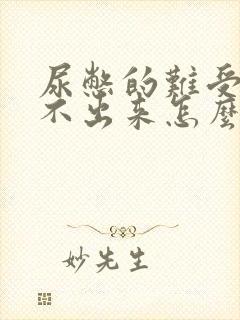 尿憋的難受
不出来怎麼
妙先生